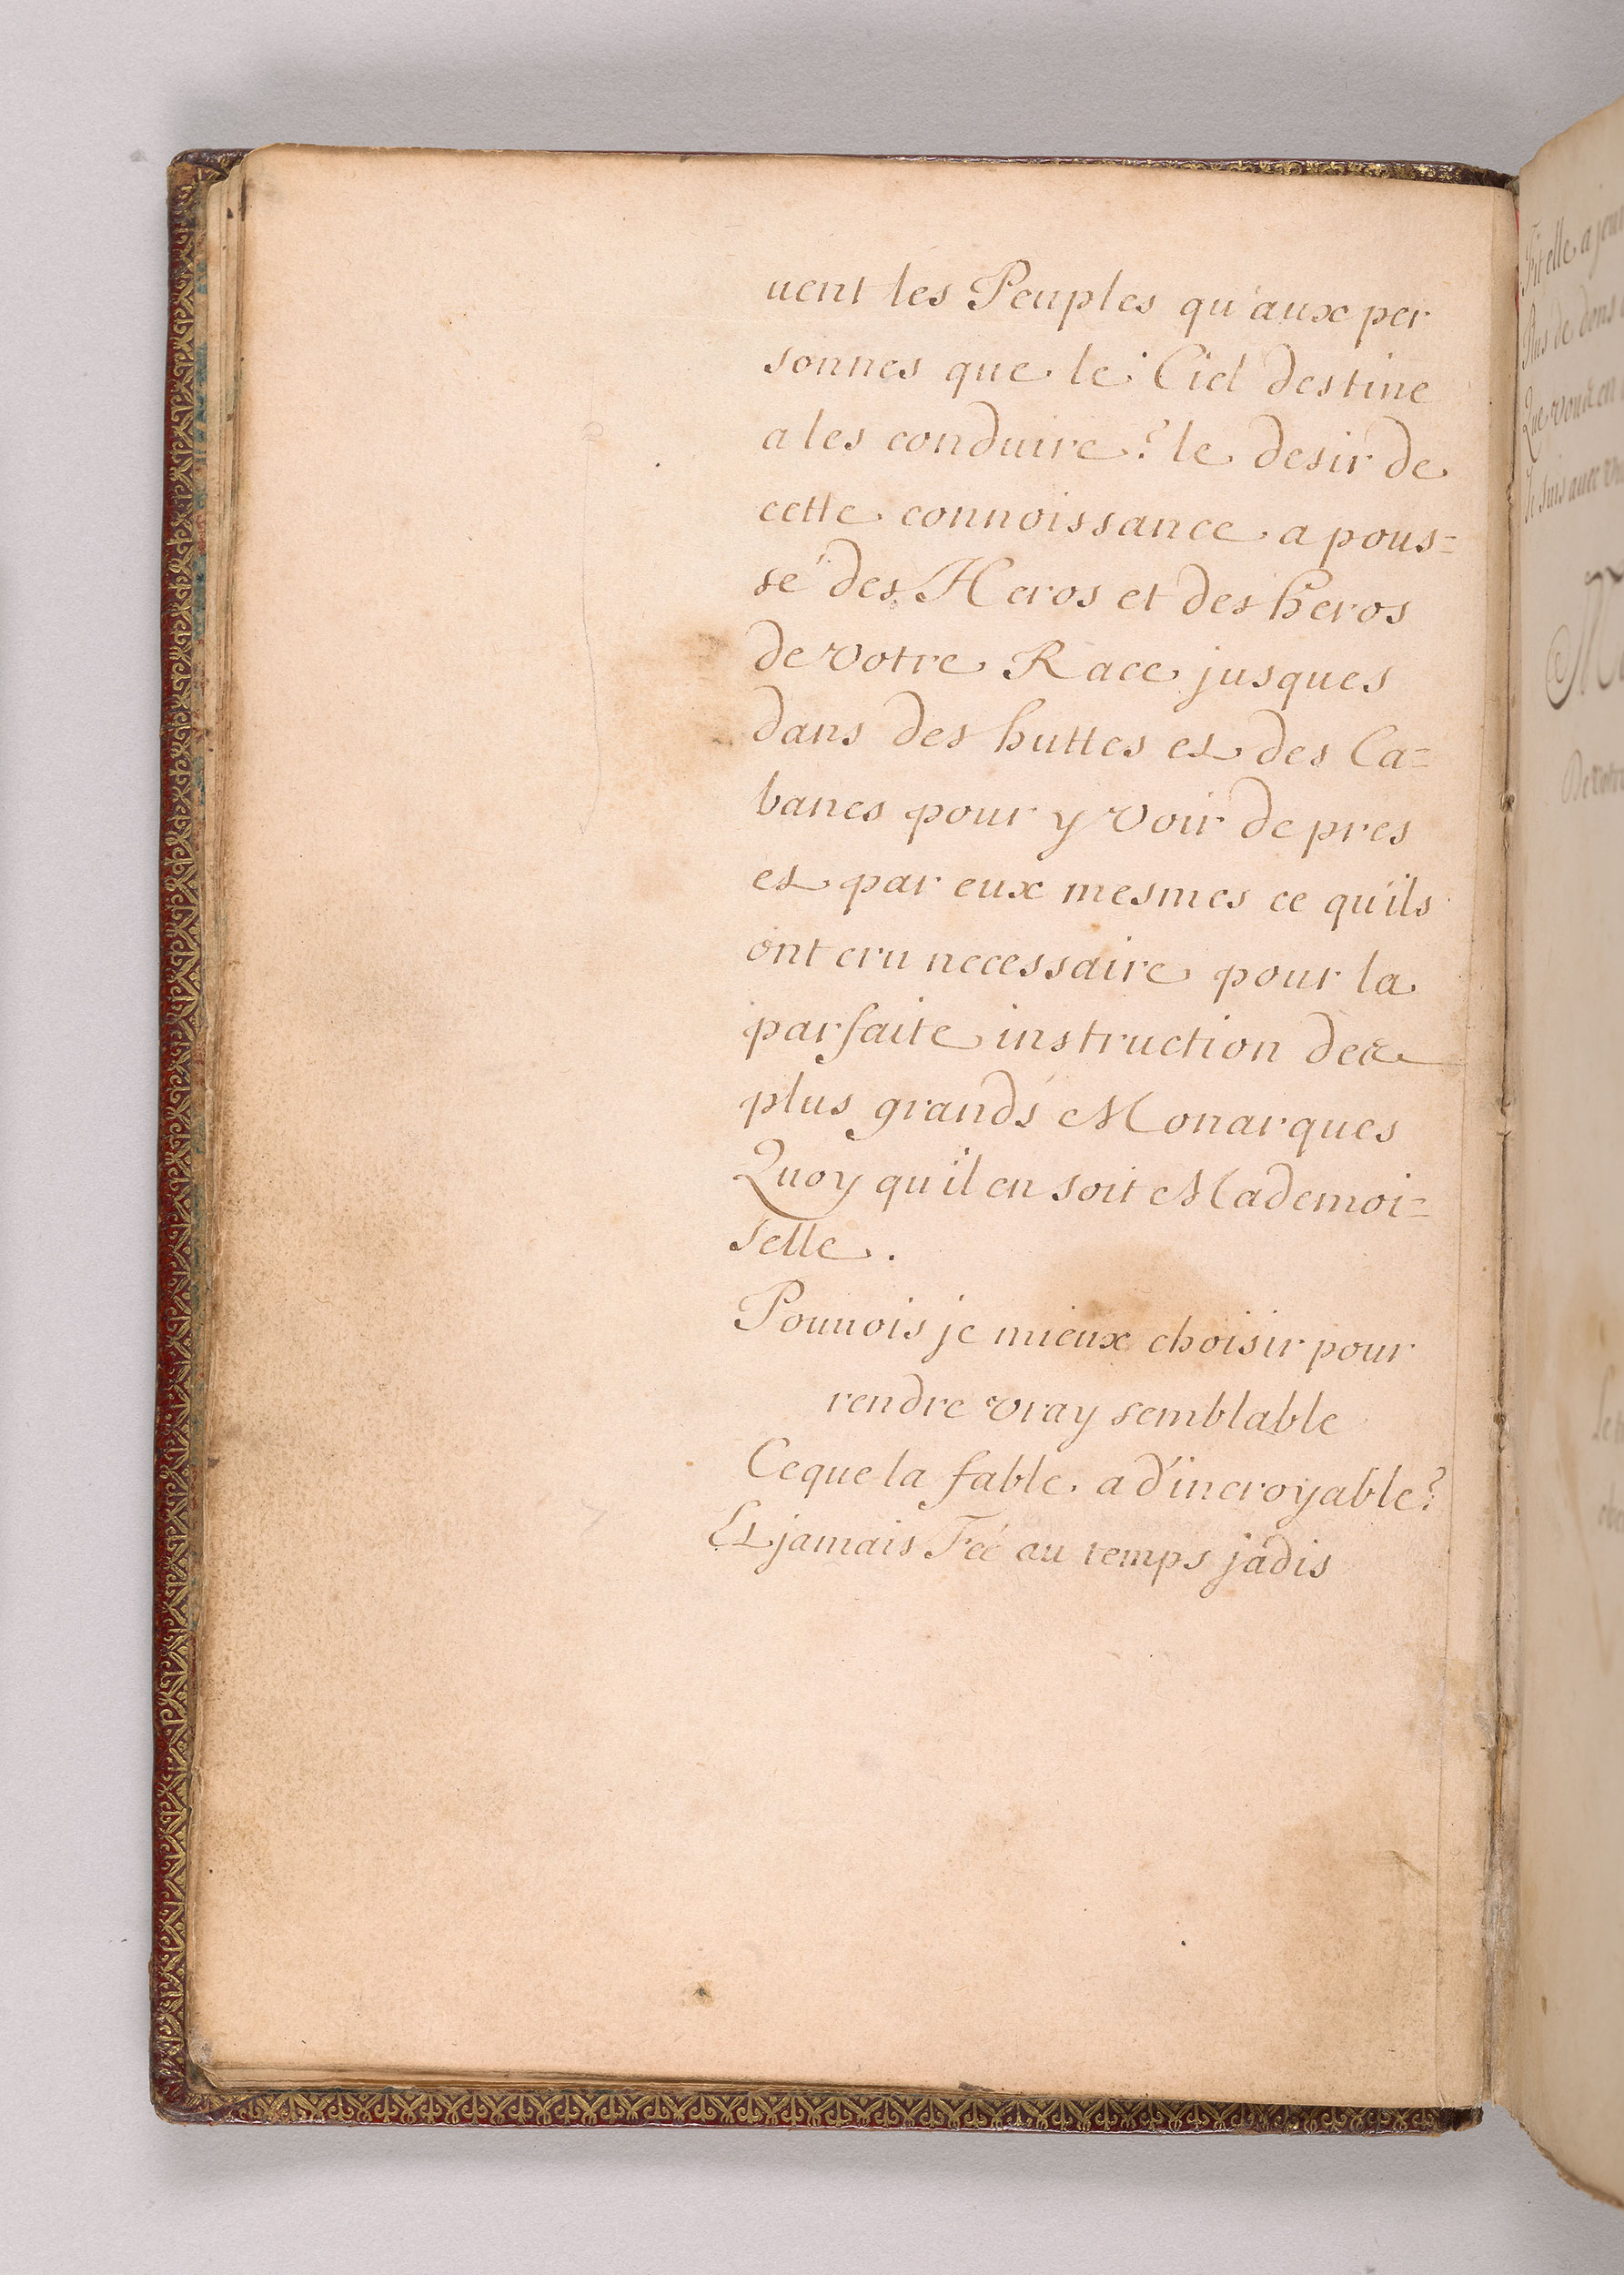 uent les Peuples qu'aux per
sonnes que le Ciel destine
a les conduire? le desir de
cette connoissance a pous=
sé des Heros et des heros
de votre Race jusques
dans des huttes et des Ca=
banes pour y voir de pres
et par eux mesmes ce qu'ils
ont cru necessaire pour la
parfaite instruction des
plus grands Monarques
Quoy qu'il en soit Mademoi=
selle.
Pouuois je mieux choisir pour
rendre vray semblable
Ce que la fable a d'incroyable?
Et jamais Feé au temps jadis
Fit elle a
Plus de dons
Que vous en
Je suis auec
De votre